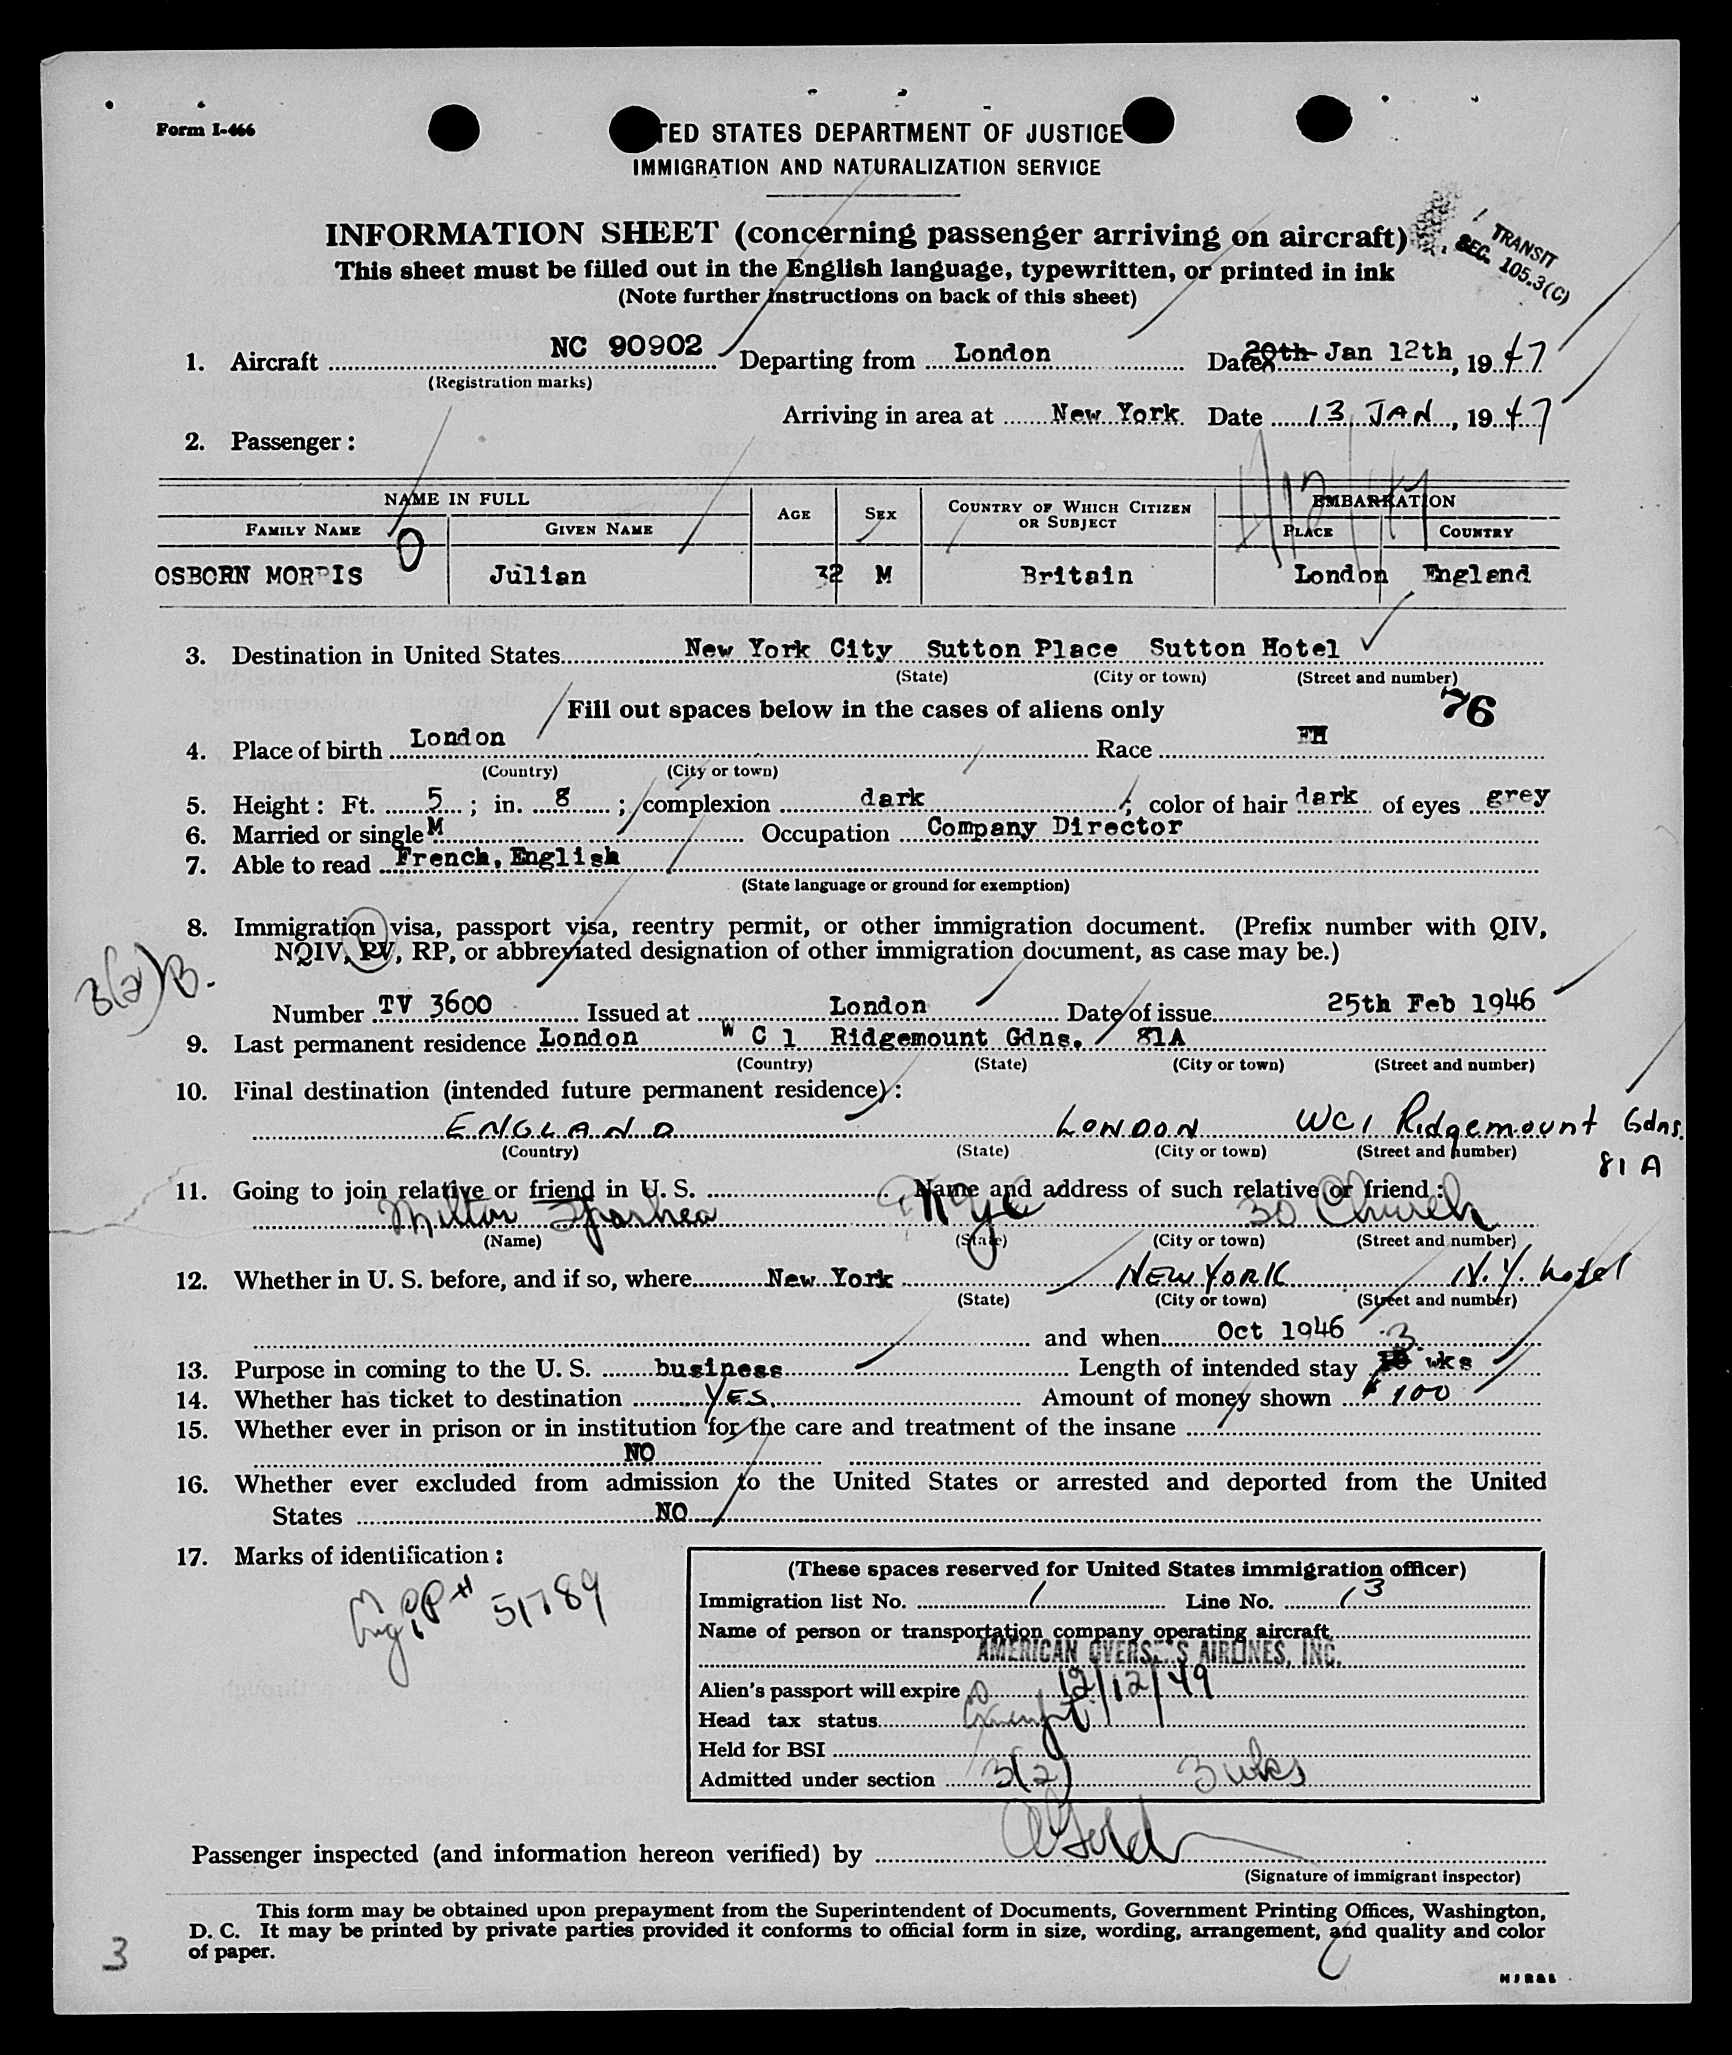 Form I-466
TED STATES DEPARTMENT OF JUSTICE
IMMIGRATION AND NATURALIZATION SERVICE
INFORMATION SHEET (concerning passenger arriving on aircraft)
TRANSIT
SEC. 105.3(C)
This sheet must be filled out in the English language, typewritten, or printed in ink
(Note further instructions on back of this sheet)
1. Aircraft NC 90902 Departing from London Date 20th Jan 12th, 1947
(Registration marks)
Arriving in area at New York Date 13 JAN, 1947
2. Passenger:
NAME IN FULL AGE SEX COUNTRY OF WHICH CITIZEN OR SUBJECT EMBARKATION
FAMILY NAME GIVEN NAME PLACE COUNTRY
OSBORN MORRIS O Julian 32 M Britain London England
3. Destination in United States New York City Sutton Place Sutton Hotel
(State) (City or town) (Street and number)
76
Fill out spaces below in the cases of aliens only
4. Place of birth London Race
(Country) (City or town)
5. Height: Ft. 5; in. 8; complexion dark; color of hair dark of eyes grey
6. Married or single M Occupation Company Director
7. Able to read French, English
(State language or ground for exemption)
8. Immigration visa, passport visa, reentry permit, or other immigration document. (Prefix number with QIV,
NQIV, PV, RP, or abbreviated designation of other immigration document, as case may be.)
3(2)B.
Number TV 3600 Issued at London Date of issue 25th Feb 1946
9. Last permanent residence London W C 1 Ridgemount Gdns. 81A
(Country) (State) (City or town) (Street and number)
10. Final destination (intended future permanent residence):
ENGLAND LONDON WC1 Ridgemount Gdns.
(Country) (State) (City or town) (Street and number)
81A
11. Going to join relative or friend in U. S. Name and address of such relative or friend:
Milton NYC 30 Church
(Name) (State) (City or town) (Street and number)
12. Whether in U. S. before, and if so, where New York NEW YORK N.Y. hotel
(State) (City or town) (Street and number)
and when Oct 1946
13. Purpose in coming to the U. S. business Length of intended stay 3 wks
14. Whether has ticket to destination YES. Amount of money shown $100
15. Whether ever in prison or in institution for the care and treatment of the insane
NO
16. Whether ever excluded from admission to the United States or arrested and deported from the United
States NO
17. Marks of identification:
Eng PP # 51789
(These spaces reserved for United States immigration officer)
Immigration list No. 1 Line No. 13
Name of person or transportation company operating aircraft
AMERICAN OVERSEAS AIRLINES, INC.
Alien's passport will expire 12/12/49
Head tax status Exempt
Held for BSI
Admitted under section 3(2) 3 wks
Passenger inspected (and information hereon verified) by
(Signature of immigrant inspector)
This form may be obtained upon prepayment from the Superintendent of Documents, Government Printing Offices, Washington,
D. C. It may be printed by private parties provided it conforms to official form in size, wording, arrangement, and quality and color
of paper.
3